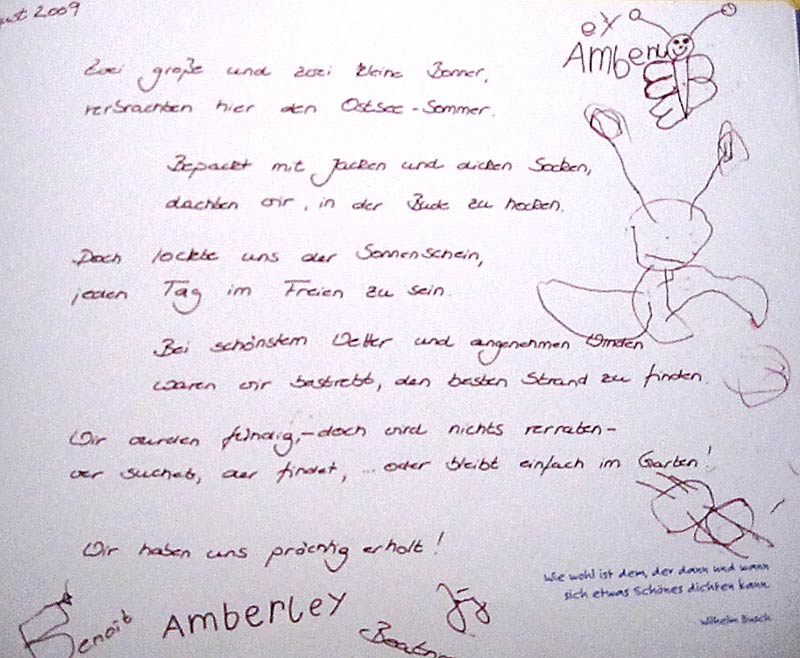 ust 2009
ey
Amberley
Zwei große und zwei kleine Bonner,
verbrachten hier den Ostsee-Sommer.
Bepackt mit Jacken und dicken Socken,
dachten wir, in der Bude zu hocken.
Doch lockte uns der Sonnenschein,
jeden Tag im Freien zu sein.
Bei schönstem Wetter und angenehmen Winden
waren wir bestrebt, den besten Strand zu finden.
Wir wurden fündig, - doch wird nichts verraten -
wer suchet, der findet, ... oder bleibt einfach im Garten!
Wir haben uns prächtig erholt!
Wie wohl ist dem, der dann und wann
sich etwas Schönes dichten kann.
Wilhelm Busch
Benoit AMBERLEY